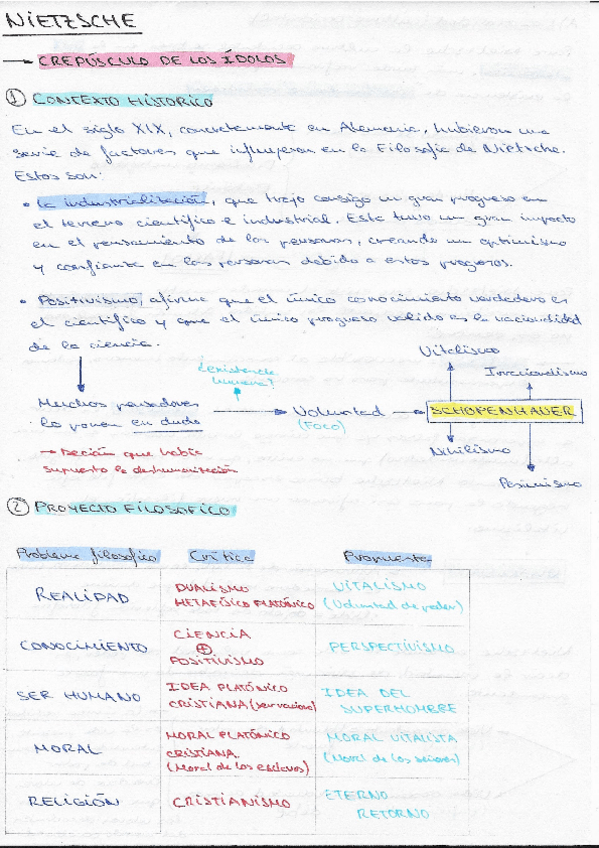 NIETZSCHE
→ CREPÚSCULO DE LOS ÍDOLOS
① CONTEXTO HISTÓRICO
En el siglo XIX, concretamente en Alemania, hubieron una
serie de factores que influyeron en la Filosofía de Nietzsche.
Estos son:
• La industrialización, que trajo consigo un gran progreso en
el terreno científico e industrial. Esta tuvo un gran impacto
en el pensamiento de las personas, creando un optimismo
y confianza en las personas debido a estos progresos.
• Positivismo, afirma que el único conocimiento verdadero es
el científico y que el único progreso valido es la racionalidad
de la ciencia.
Vitalismo
¿existencia
humana?
Irracionalismo
Muchos pensadores → Voluntad → SCHOPENHAUER
lo ponen en duda (Foco)
→ Decían que había
supuesto la deshumanización
Nihilismo
Pesimismo
② PROYECTO FILOSOFICO
Problema filosofico Crítica Propuesta
REALIDAD DUALISMO VITALISMO
METAFÍSICO PLATÓNICO (Voluntad de poder)
CONOCIMIENTO CIENCIA PERSPECTIVISMO
⊕
POSITIVISMO
SER HUMANO IDEA PLATÓNICO IDEA DEL
CRISTIANA (ser racional) SUPERHOMBRE
MORAL MORAL PLATÓNICO MORAL VITALISTA
CRISTIANA (Moral de los señores)
(Moral de los esclavos)
RELIGIÓN CRISTIANISMO ETERNO
RETORNO